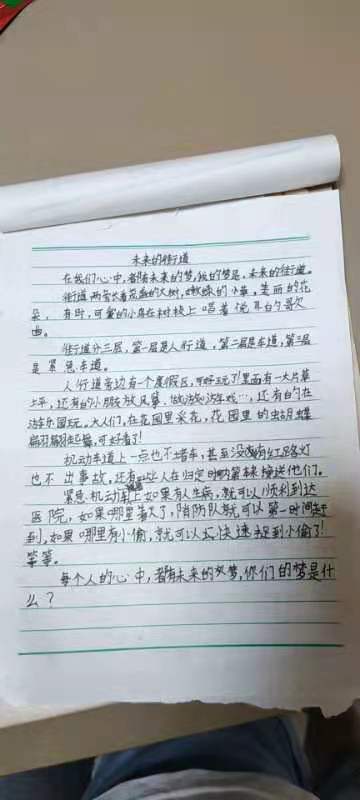 未来的街道
在我们心中,都有未来的梦,我的梦是,未来的街道。
街道两旁长着茂盛的大树,嫩绿的小草,美丽的花
朵,有时,可爱的小鸟在树枝上唱着悦耳的歌
曲。
街道分三层,第一层是人行道,第二层是车道,第三层
是紧急车道。
人行道旁边有一个度假区,可好玩了!里面有一大片草
上平,还有的小朋友放风筝,做游戏…,还有的在
游乐园玩,大人们,在花园里采花,花园里的蝴蝶
翩翩起舞,可好看了!
机动车道上一点也不堵车,甚至没有红路灯
也不出事故,还有人在归定时
紧急机动车上如果有人生病,就可以顺利到达
医院,如果哪里着火了,消防队就可以第一时间赶
到,如果哪里有小偷,就可以快速捉到小偷了!
等等。
每个人的心中,都有未来的梦,你们的梦是什
么?